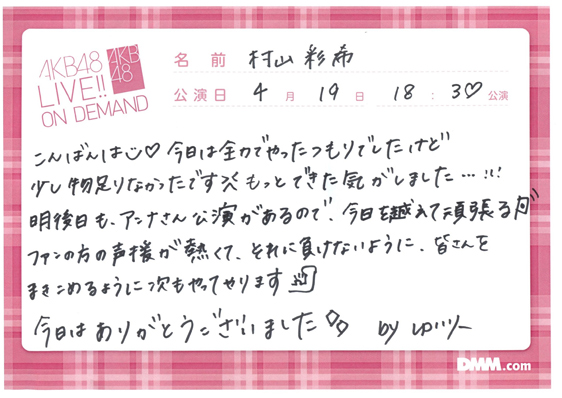 AKB48
LIVE!!
ON DEMAND
AKB
48
名前 村山彩希
公演日 4月 19日 18:30公演
こんばんは♡今日は全力でやったつもりでしたけど
少し物足りなかったです もっとできた気がしました…!!!
明後日も、アンナさん公演があるので、今日を越えて頑張る
ファンの方の声援が熱くて、それに負けないように、皆さんを
まきこめるように次もやってやります
今日はありがとうございました by ゆいりー
DMM.com